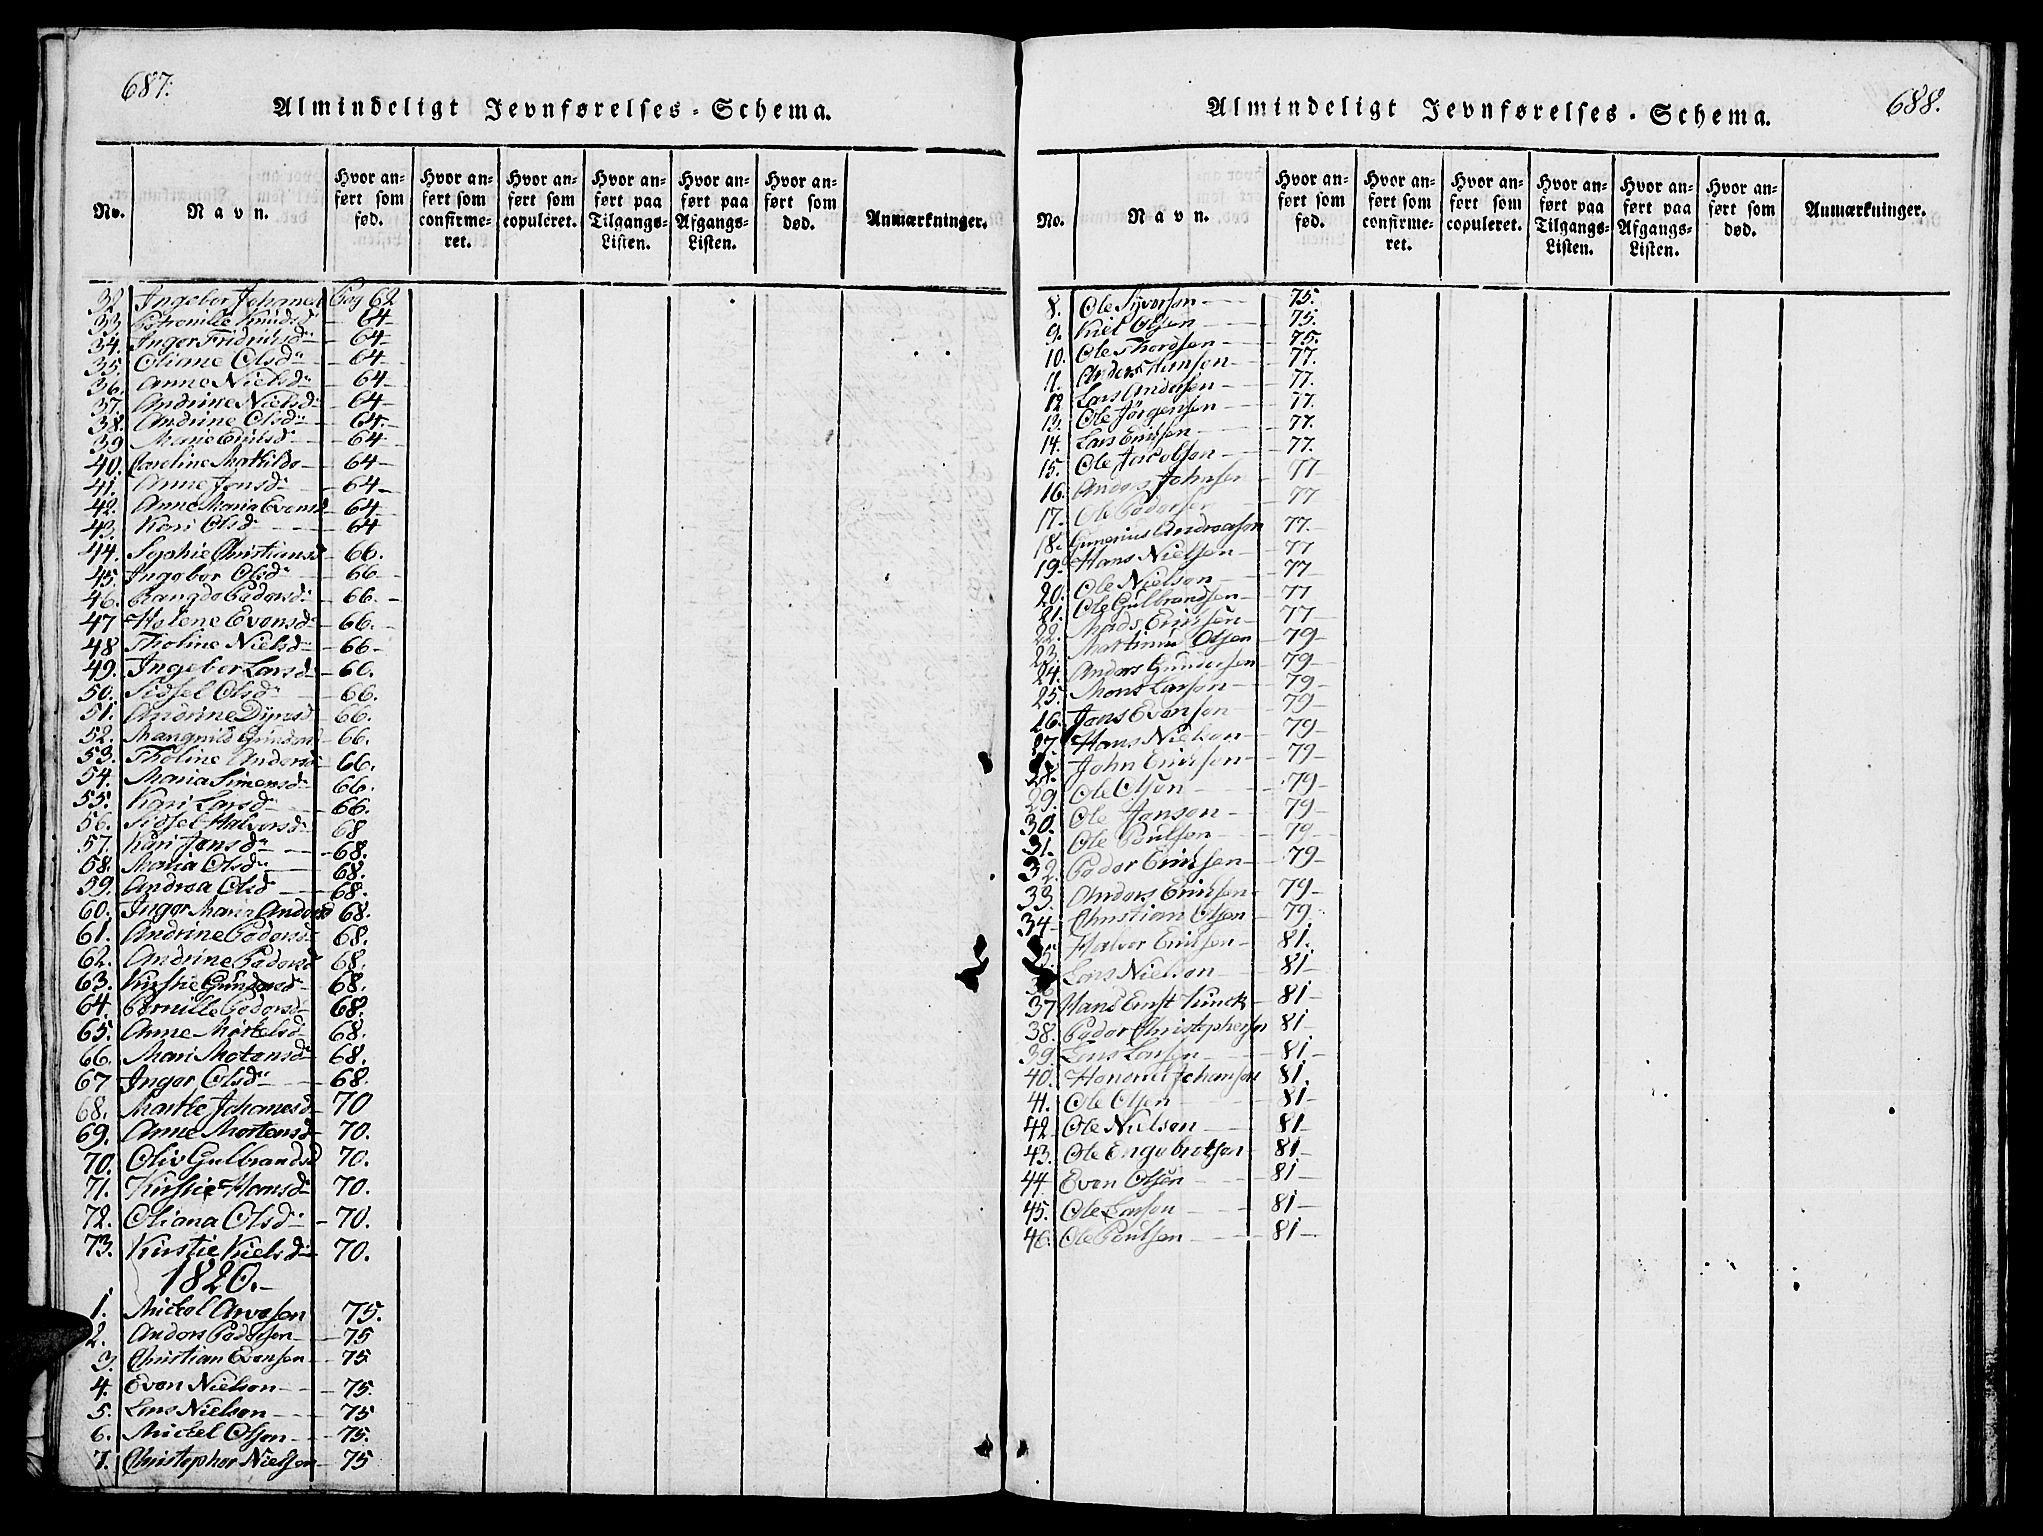 687.
Almindeligt Jevnførelses-Schema.
No.
Navn.
Hvor anført som fød.
Hvor anført som confirmeret.
Hvor anført som copuleret.
Hvor anført paa Tilgangs-Listen.
Hvor anført paa Afgangs-Listen.
Hvor anført som død.
Anmærkninger.
32. Ingebor Pag 62
33. Knudsd 64
34. Inger 64
35. Oliane Olsd 64
36. Anne Nielsd 64
37. Andrine Nielsd 64
38. Andrine Olsd 64.
39 Marie 64
40. Caroline Mathilde 64
41. Anne Jensd 64
42. Anne Maria 64
43. Kari Olsd 64
44. Sophie Christiansd 66.
45. Ingebor Olsd 66
46. Pedersd 66.
47 Helene Evensd 66.
48 Tholine Nielsd 66
49. Ingebor Larsd 60.
50. Sidsel Olsd 66.
51. Andrine 66.
52. 66.
53. Tholine Andersd 66.
54. Maria Simensd 66.
55. Kari Larsd 66.
56. Sidsel Halvorsd 68
57. Kari Jensd 68.
58. Maria Olsd 68.
59. Andrea Olsd 68.
60. Inger Maria 68.
61. Andrine Pedersd 68.
62. Andrine Pedersd 68.
63. Kirstie Gundersd 68.
64. Pernille Pedersd 68.
65. Anne Mikkelsd 68.
66. Mari 68.
67 Inger Olsd 68.
68. Marthe Johanesd 70
69. Anne Mortensd 70.
70. Oliv Gulbrandsd 70.
71. Kirstie Hansd 70.
72. Oliana Olsd 70.
73. Kirstie Kielsd 70.
1820.
1. Mickel Arvesen 75.
2. Anders Pedersen 75
3. Christian Evensen 75
4. Even Nielsen 75.
5. Lars Nielsen 75
6. Mickel Olsen 75.
7. Christopher Nielsen 75
688.
Almindeligt Jevnførelses-Schema.
No.
Navn.
Hvor anført som fød.
Hvor anført som confirmeret.
Hvor anført som copuleret.
Hvor anført paa Tilgangs-Listen.
Hvor anført paa Afgangs-Listen.
Hvor anført som død.
Anmærkninger.
8. Ole Syversen 75.
9. Kiel Olsen 75.
10. Ole Thordsen 75.
11. Anders Hansen 77.
12 Lars Andersen 77.
13. Ole Jørgensen 77.
14. Lars Ericksen 77.
15. Ole Jacobsen 77.
16. Anders Johnsen 77
17. Ole Pedersen 77
18. Gunerius Andreasen 77.
19. Hans Nielsen 77
20. Ole Nielsen 77
21. Ole Gulbrandsen 77
22. Mads Ericksen 77
23. Martinus Olsen 79
24. Anders Gundersen 79
25. Mons Larsen 79
16. Jens Evensen 79
27. Hans Nielsen 79
28. John Ericksen 79
29. Ole Olsen 79
30. Ole Jensen 79
31. Ole Poulsen 79
32. Peder Ericksen 79
33. Anders Ericksen 79
34 Christian Olsen 79
Halvor Ericksen 81.
Lars Nielsen 81
37 Hans Ernst 81
38. Peder Christophersen 81
39 Lars Larsen 81
40. Johansen 81.
41. Ole Olsen 81
42 Ole Nielsen 81
43. Ole Engebretsen 81
44. Even Olsen 81
45. Ole Larsen 81
46. Ole Poulsen 81